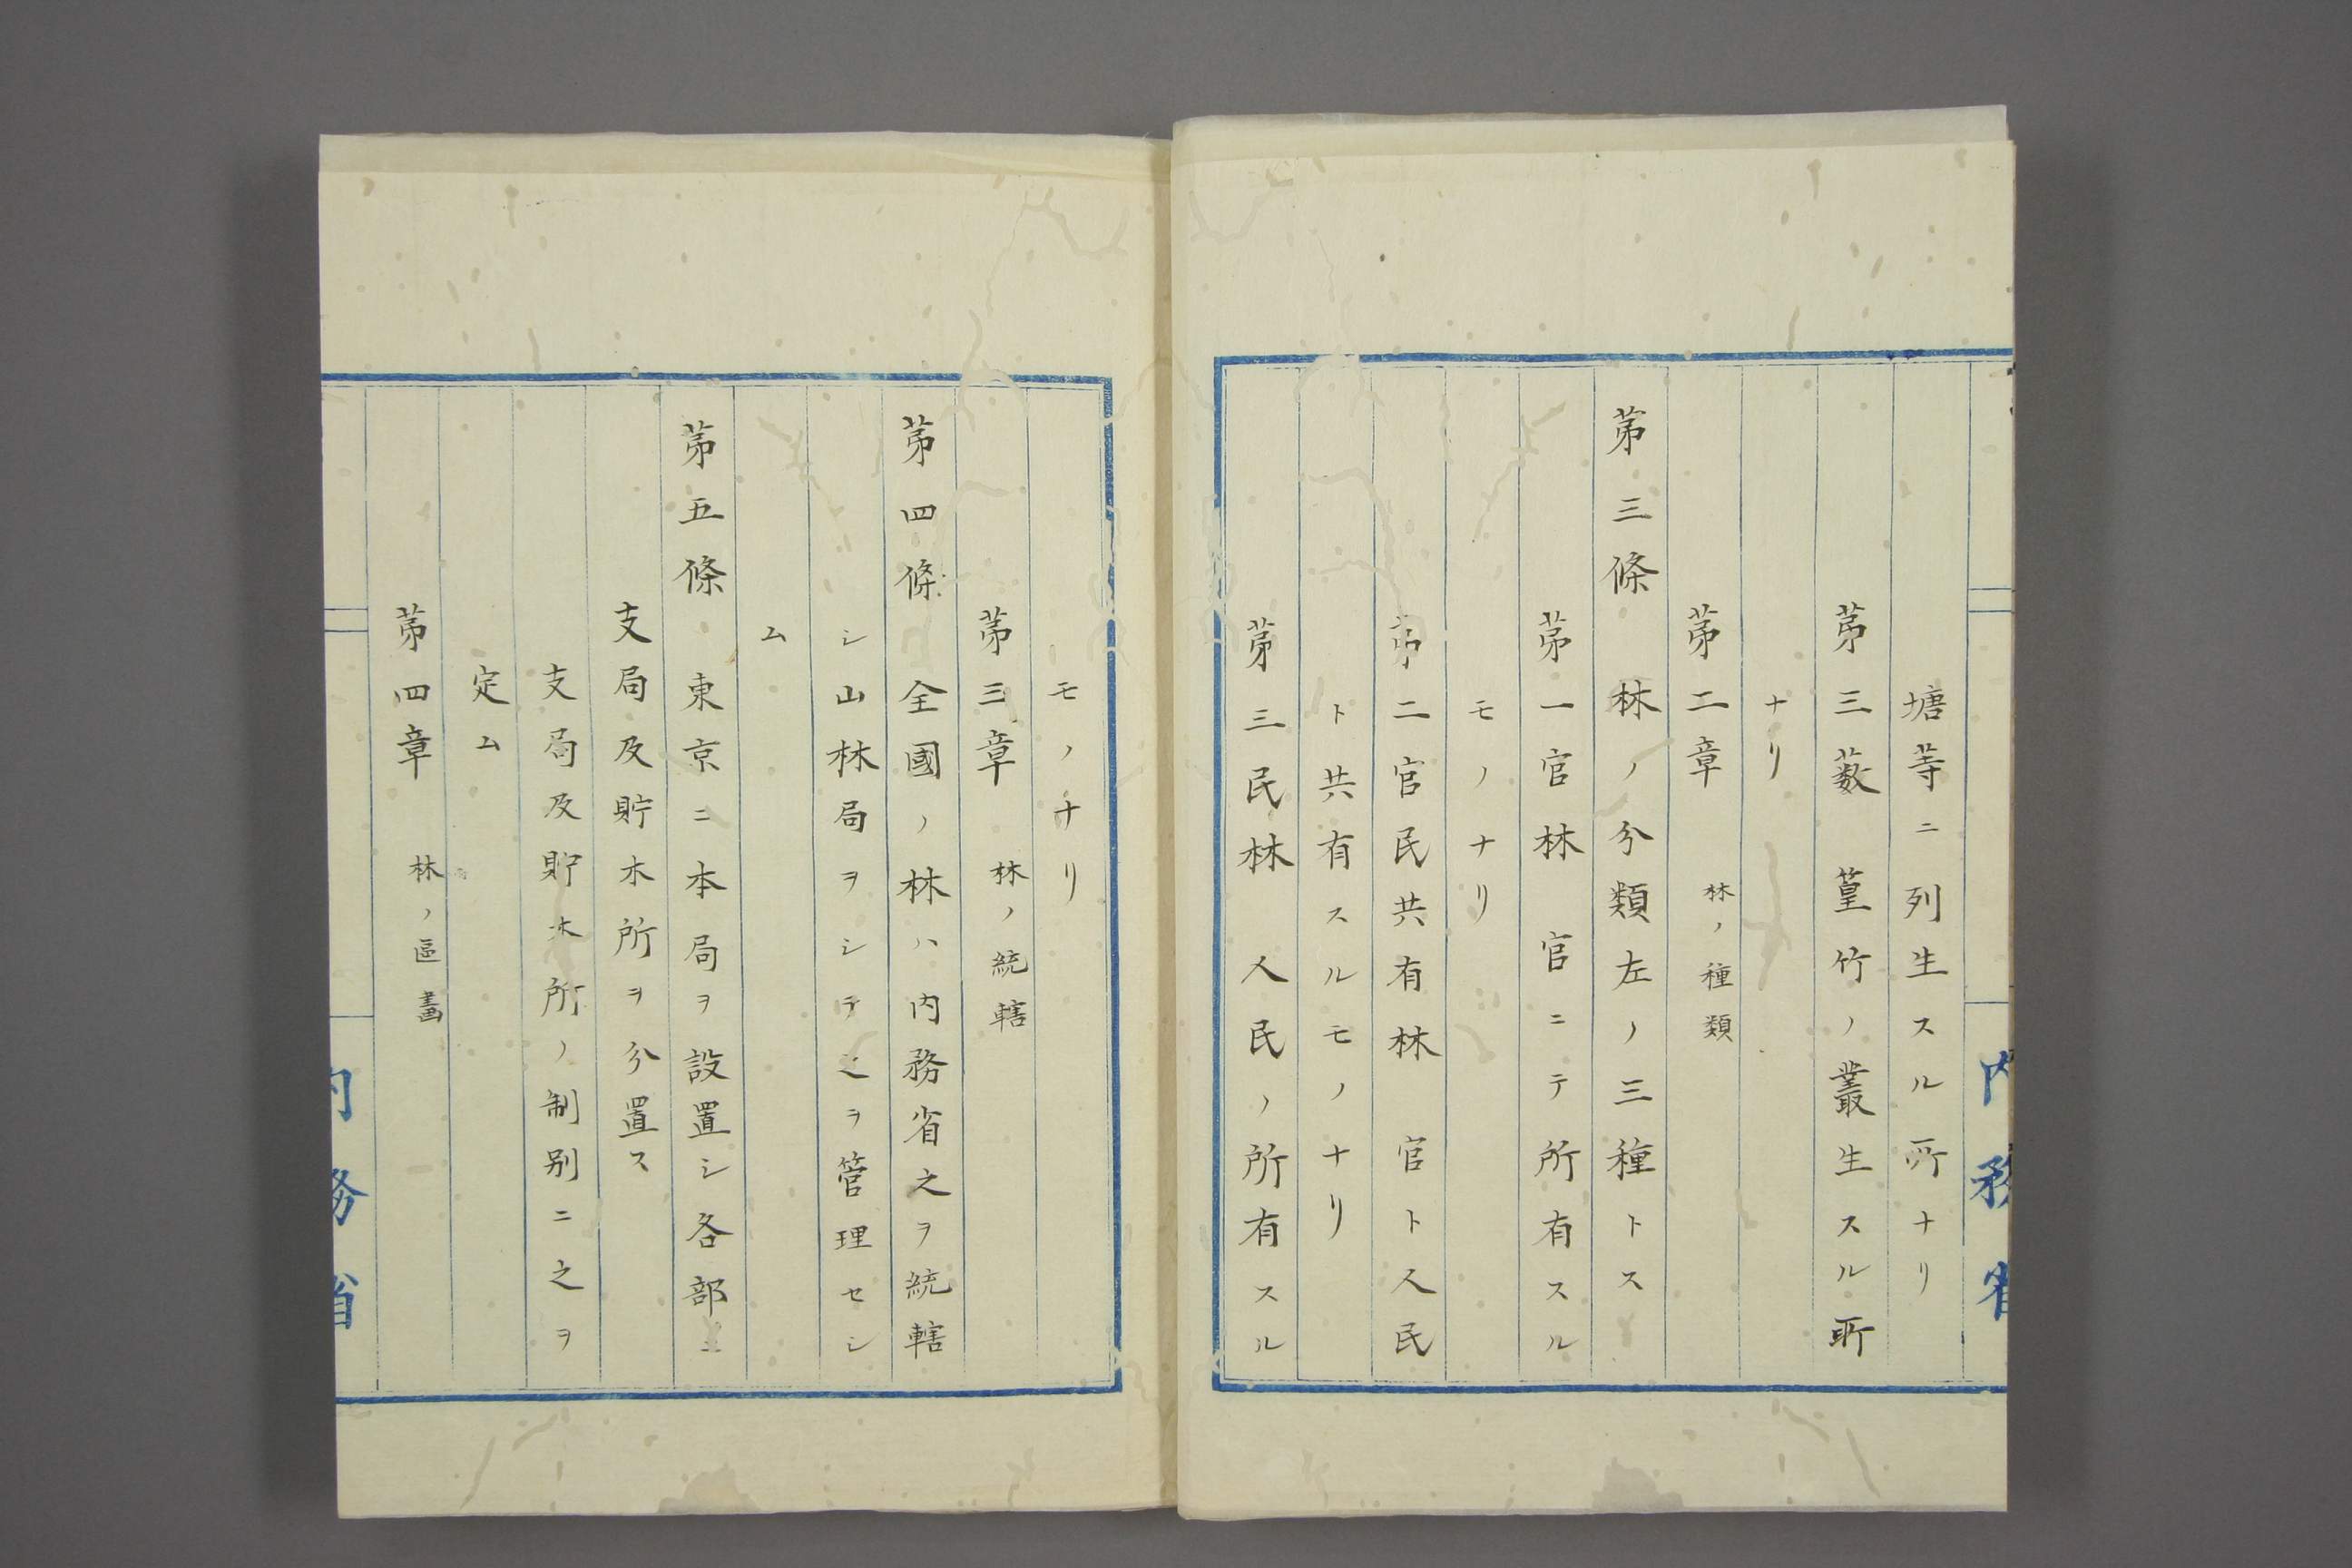 塘等ニ列生スル所ナリ
第三藪　篁竹ノ叢生スル所
ナリ
第二章　林ノ種類
第三條　林ノ分類左ノ三種トス
第一官林　官ニテ所有スル
モノナリ
第二官民共有林　官ト人民
ト共有スルモノナリ
第三民林　人民ノ所有スル
モノナリ
第三章　林ノ統轄
第四條　全國ノ林ハ内務省之ヲ統轄
シ山林局ヲシテ之ヲ管理セシ
ム
第五條　東京ニ本局ヲ設置シ各部ニ
支局及貯木所ヲ分置ス
支局及貯木所ノ制別ニ之ヲ
定ム
第四章　林ノ區畫
内務省
内務省